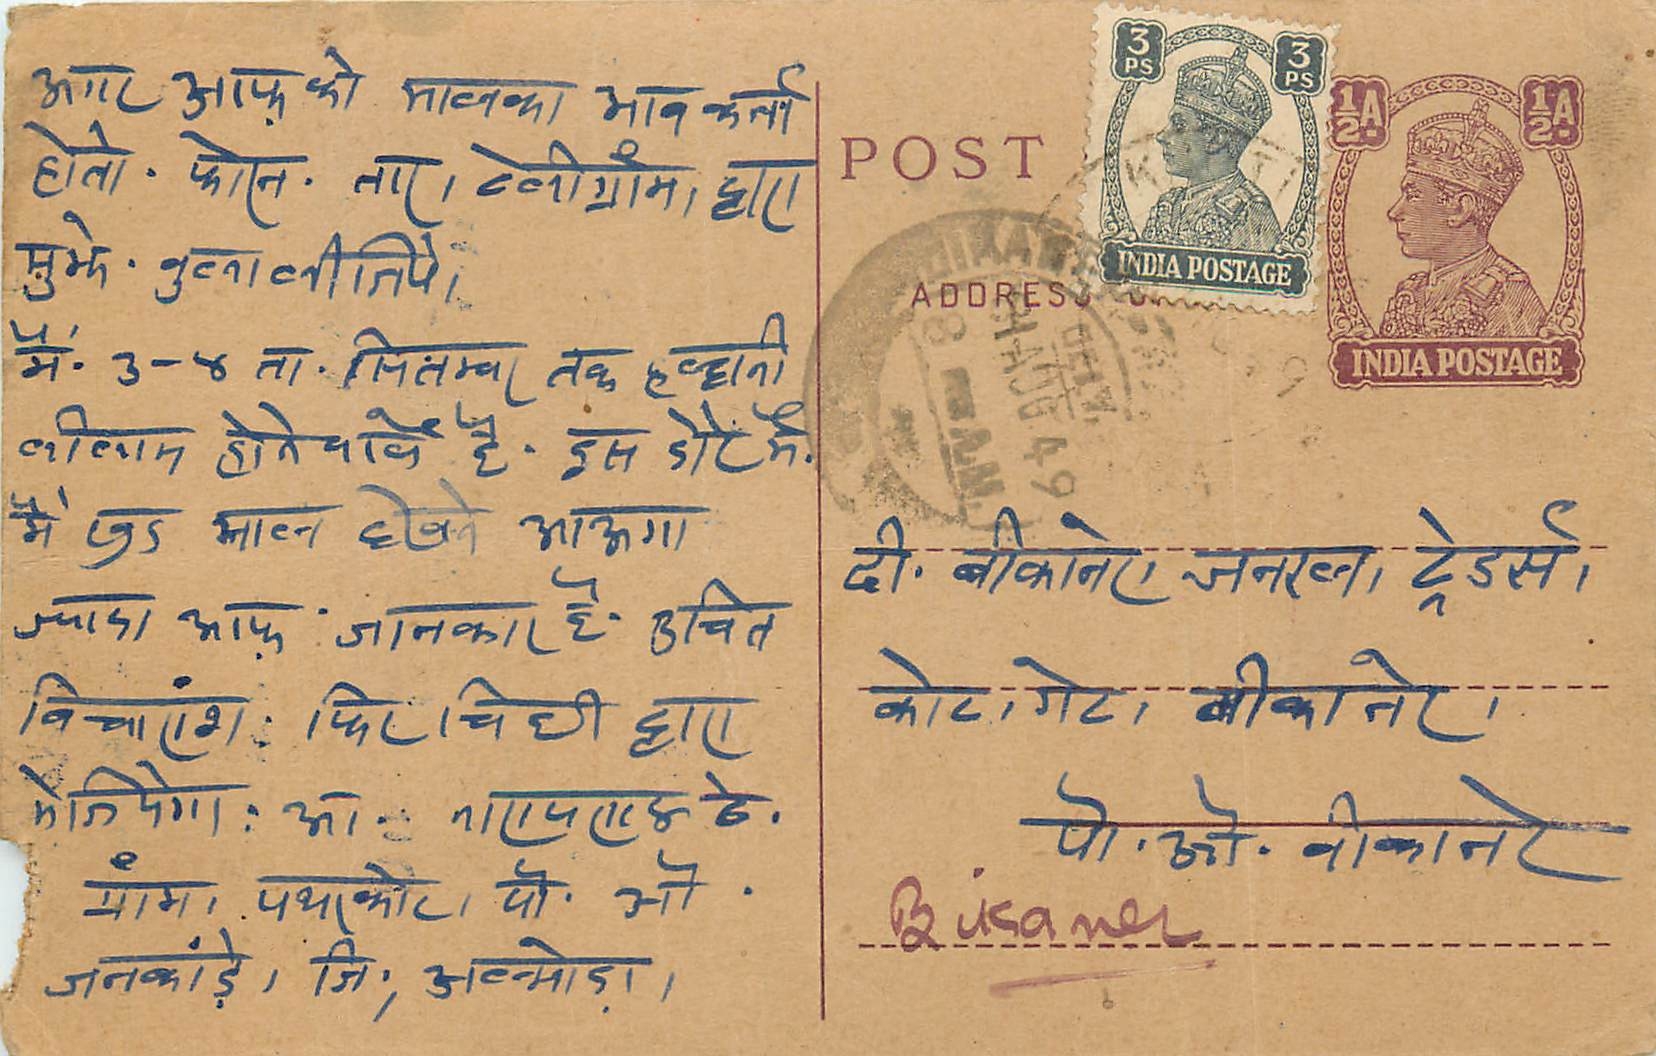 अगर आफ़ को मालका भाव कर्ना
होतो. फोन. तार, टेलीग्रांम, द्वारा
मुझे. बुला लीजिये,
मैं. ३-४ ता. सितम्बर तक हल्द्वानी
लीलाम होने वाले है. इस डेट में.
मैं खुद माल देखने आऊगा
ज्यादा आफ़ जानकार है. उचित
विचारांश. फिर चिठी द्वारा
भेजियेगा. आ.
ग्रांम, पथरकोट, पो. ओ.
जनकांड़े, जि, अल्मोड़ा,
POST
ADDRESS
3 PS 3 PS
INDIA POSTAGE
½A. ½A.
INDIA POSTAGE
BIKANER
DELY.
31 AUG 49
8 A.M.
दी. बीकानेर, जनरल, ट्रेडर्स,
कोट, गेट, बीकानेर,
पो. ओ. बीकानेर
Bikaner